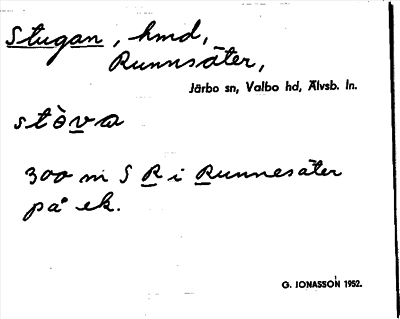 Stugan, hmd,
Runnsäter,
Järbo sn, Valbo hd, Älvsb. ln.
stòva
300 m S R i Runnesäter
på ek.
G. JONASSON 1952.